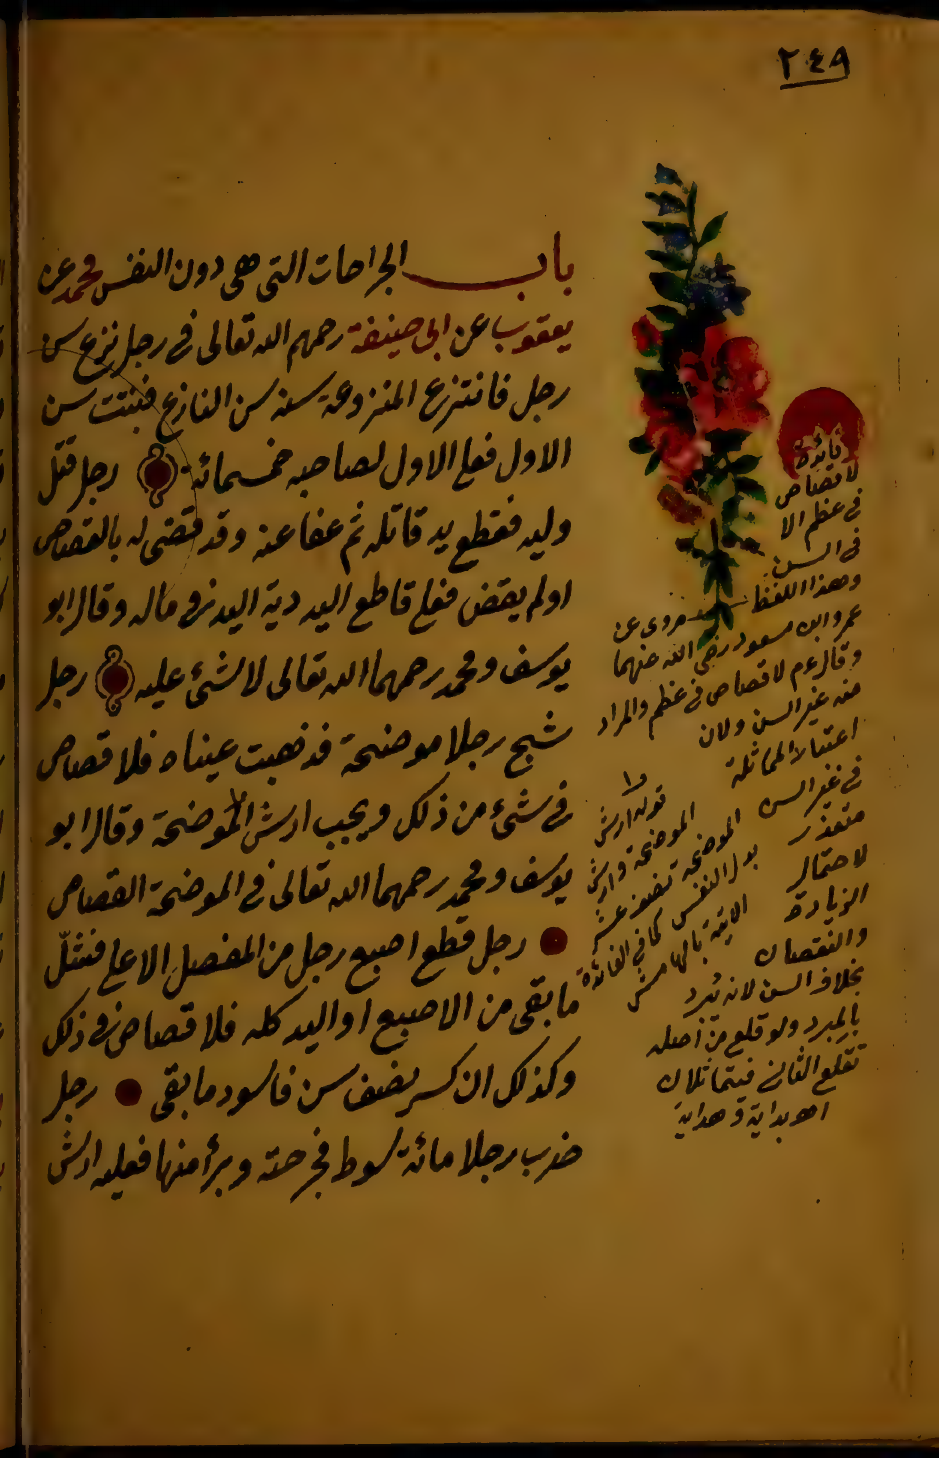 ٢٤٩
باب الجراحات التى هى دون النفس محمد عن
يعقوب عن ابى حنيفة رحمهم الله تعالى فى رجل نزع سن
رجل فانتزع المنزوعة سنه سن النازع فنبتت سن
الاول فعلى الاول لصاحبه خمسمائة رجل قتل
وليه فقطع يد قاتله ثم عفا عنه وقد قضى له بالقصاص
اولم يقض فعلى قاطع اليد دية اليد فى ماله وقال ابو
يوسف ومحمد رحمهما الله تعالى لا شئ عليه رجل
شج رجلا موضحة فذهبت عيناه فلا قصاص
فى شئ من ذلك ويجب ارش الموضحة وقال ابو
يوسف ومحمد رحمهما الله تعالى فى الموضحة القصاص
رجل قطع اصبع رجل من المفصل الاعلى فشلّ
ما بقى من الاصبع او اليد كله فلا قصاص فى ذلك
وكذلك ان كسر نصف سن فاسود ما بقى رجل
ضرب رجلا مائة سوط فجرحته وبرأ منها فعليه ارش
فائدة
لا قصاص
فى عظم الا
فى السن
وهذا اللفظ مروى عن
عمر وابن مسعود رضى الله عنهما
وقال عم لا قصاص فى عظم والمراد
منه غير السن ولان
اعتبار المماثلة
فى غير السن
متعذر
لاحتمال
الزيادة
والنقصان
بخلاف السن لانه يبرد
بالمبرد ولو قلع من اصله
تقلع الثانى فيتماثلان
اهـ بداية وهداية
قوله ارش
الموضحة وارش
الموضحة نصف عشر
بدل النفس كما فى الفائدة
الاتية بالهامش